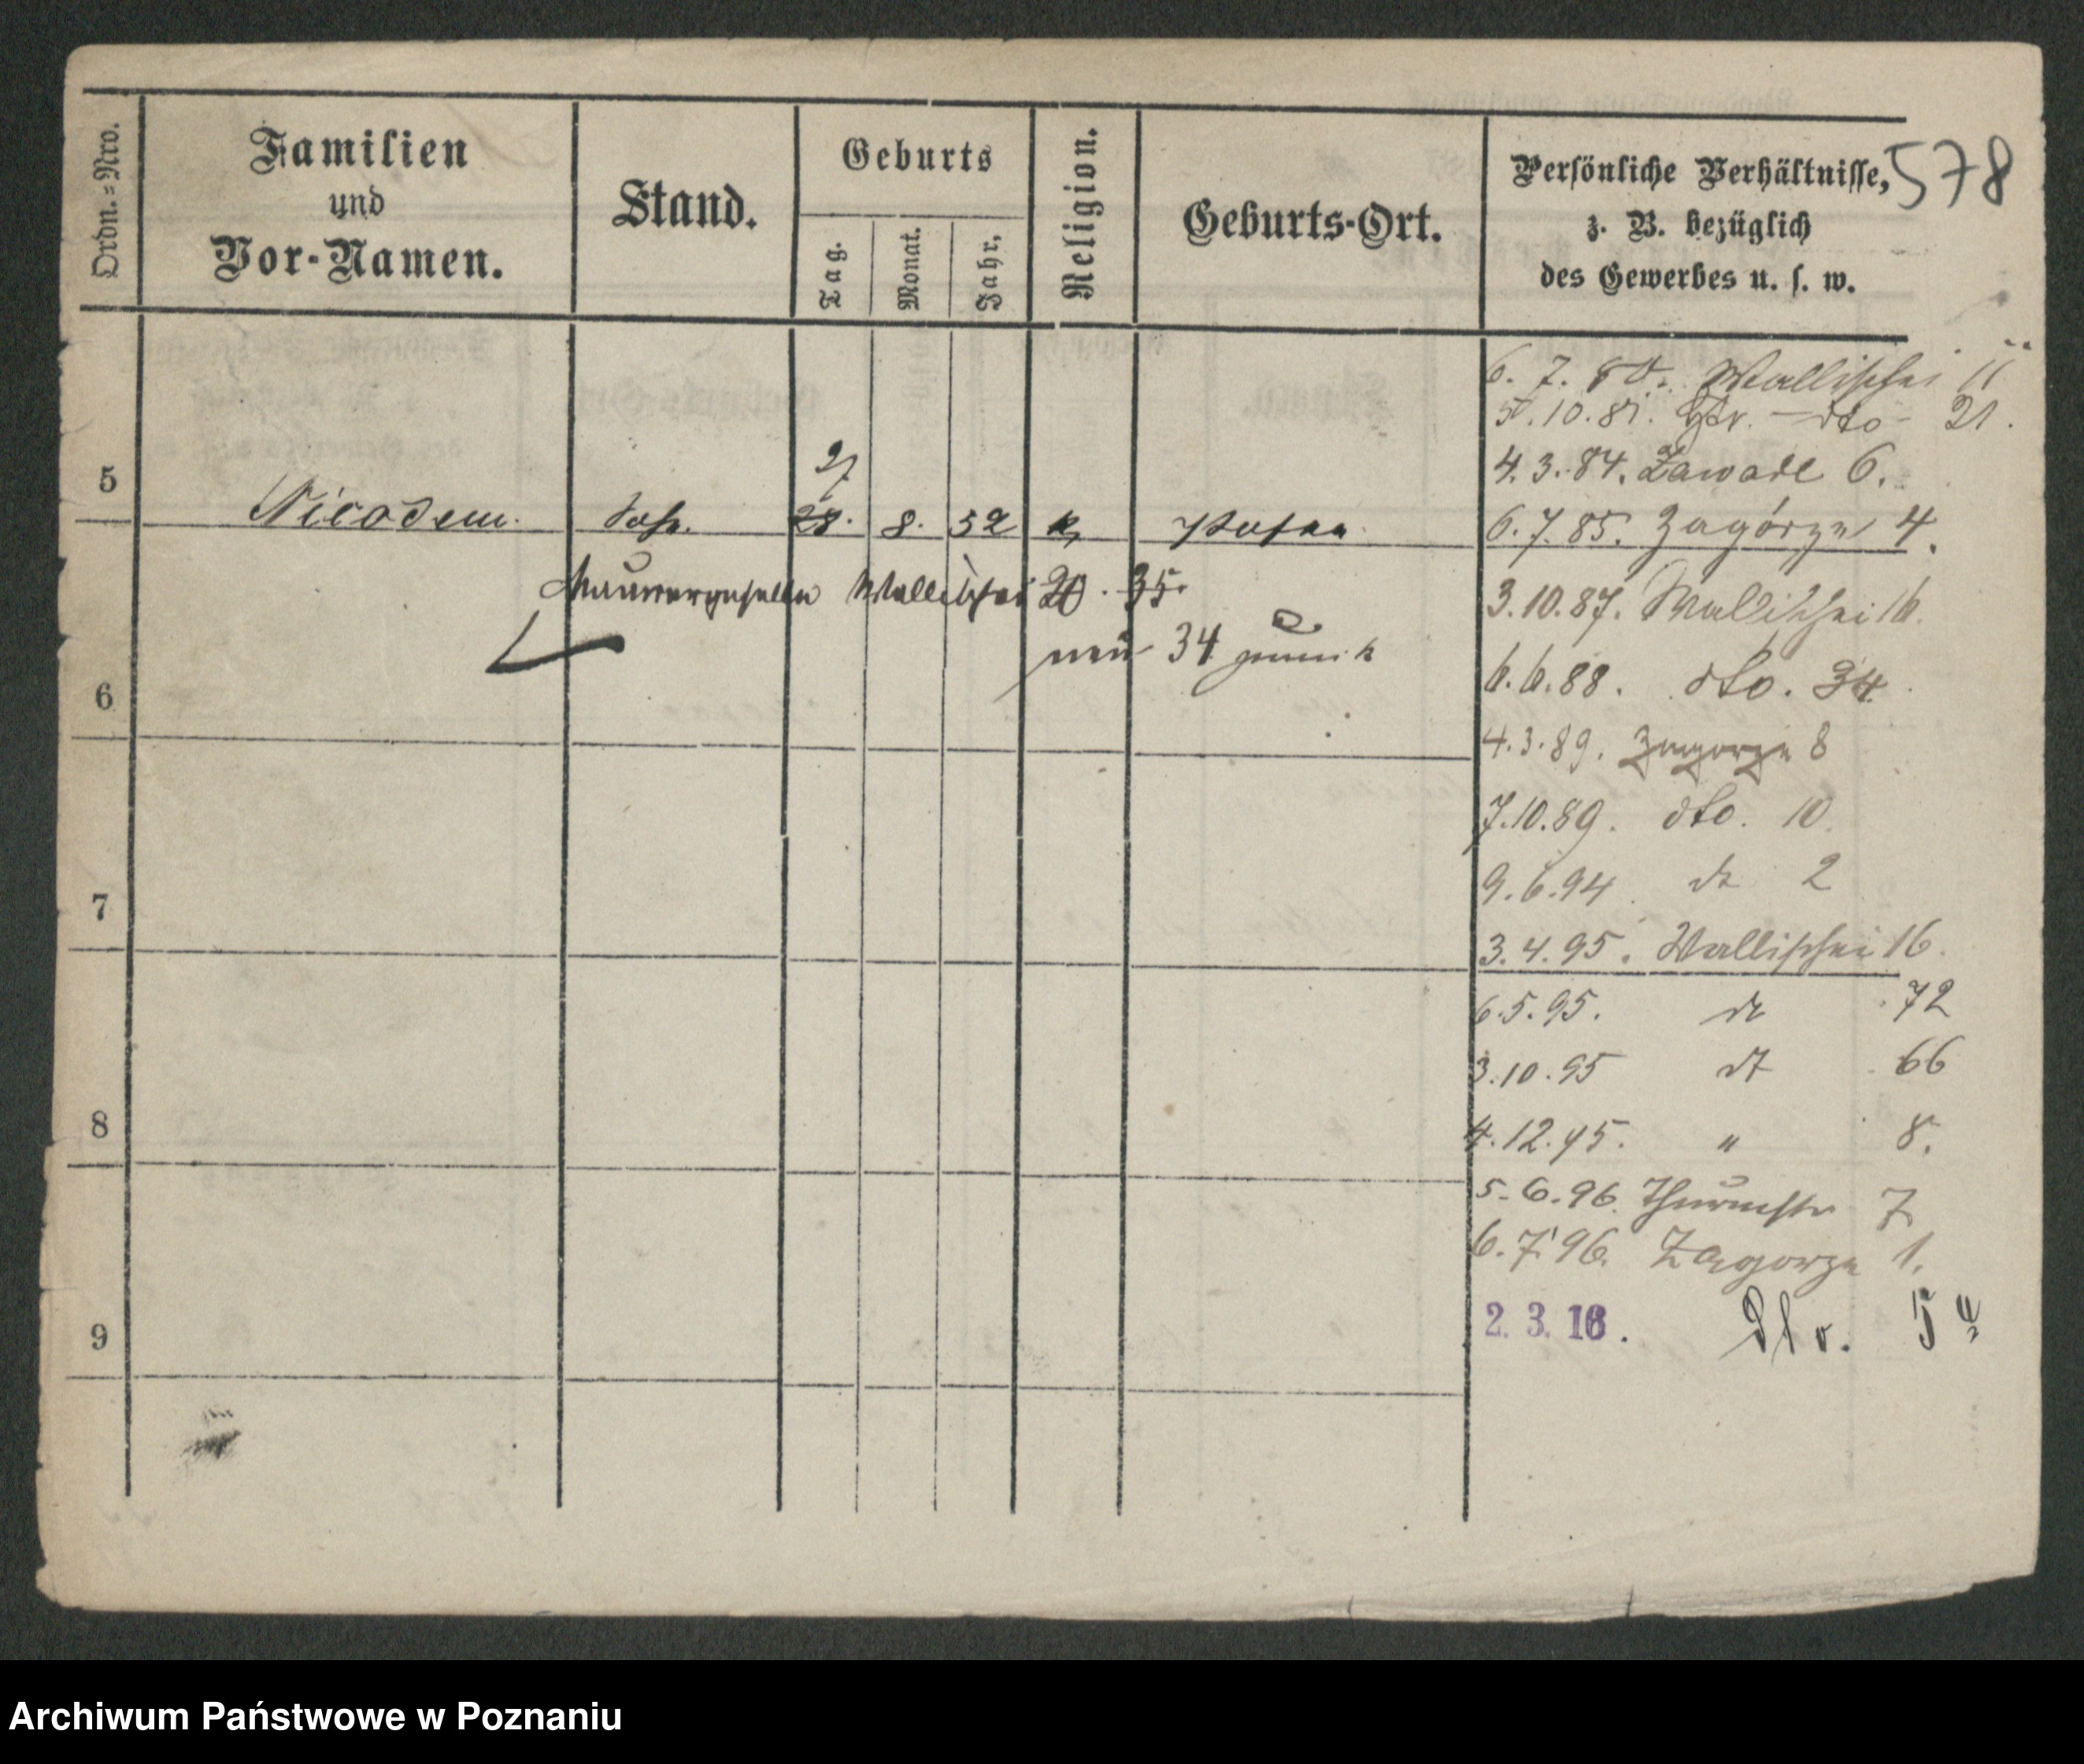 578
Ordn.=Nro.
Familien
und
Vor-Namen.
Stand.
Geburts
Tag.
Monat.
Jahr.
Religion.
Geburts-Ort.
Persönliche Verhältnisse,
z. B. bezüglich
des Gewerbes u. s. w.
27
5 Nicodem. Sohn. 28. 8. 52 k. Posen
Maurergeselle Wallischei 20. 35.
neu 34
6
7
8
9
6. 7. 80. Wallischei 11
5.10.81. dto 21.
4.3.84. Zawade 6.
6.7.85. Zagórze 4.
3.10.87. Wallischei 16.
6.6.88. dto. 34
4.3.89. Zagorze 8
7.10.89. dto. 10.
9.6.94. dt 2
3.4.95. Wallischei 16.
6.5.95. dt 72
3.10.95 dt 66
4.12.95. " 8.
5.6.96. Thurmstr 7
6.7.96. Zagorze 1.
2. 3. 16.
Archiwum Państwowe w Poznaniu